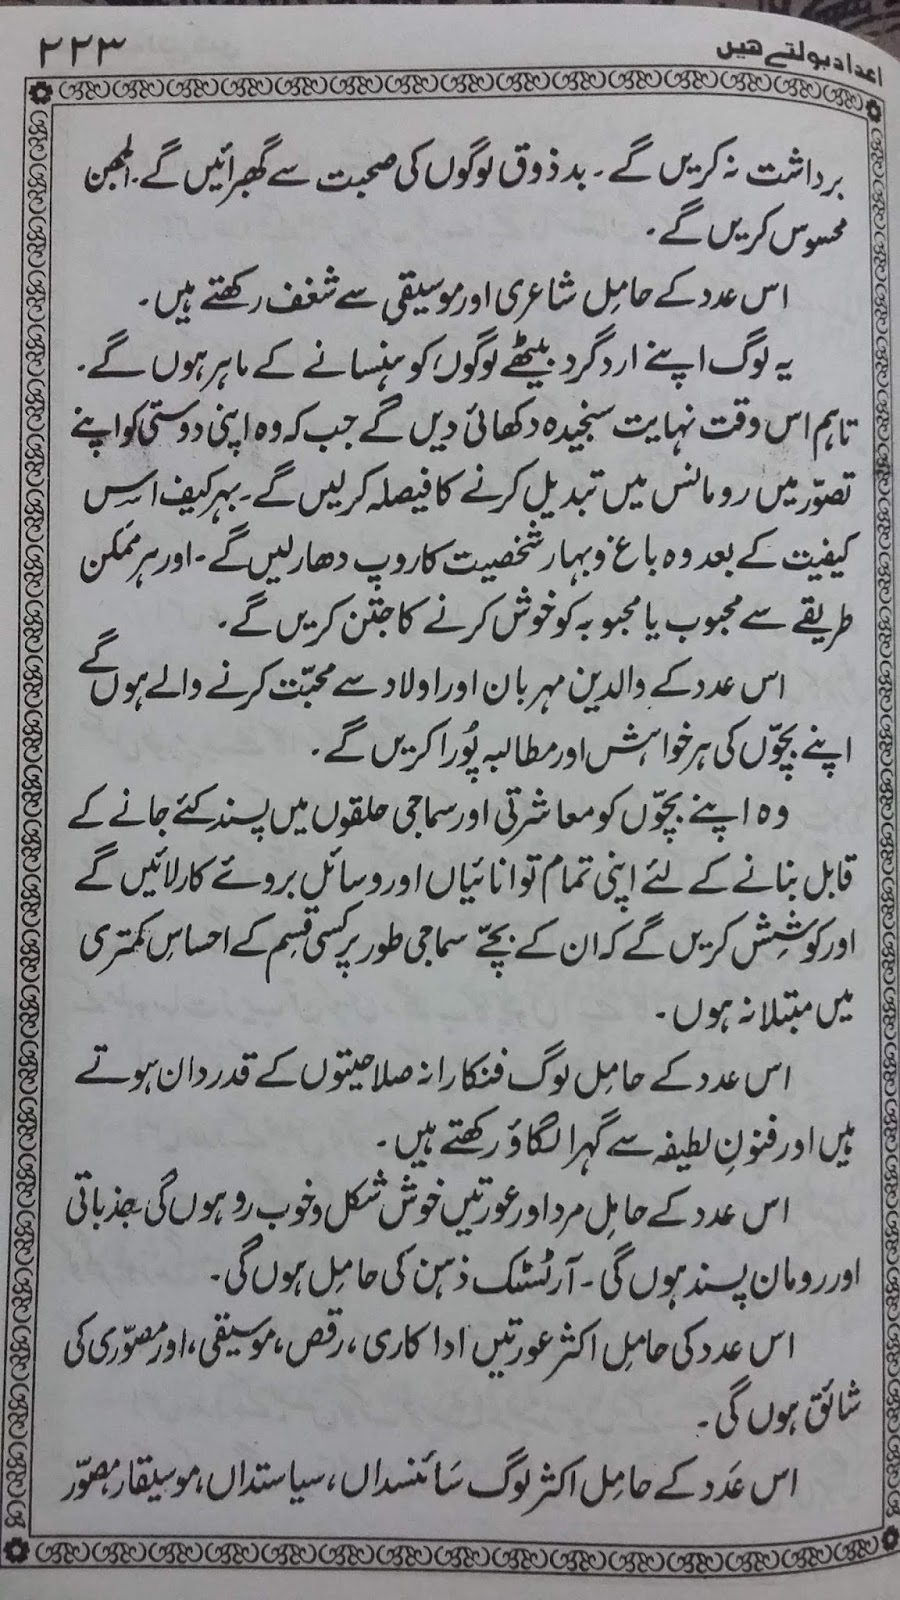 اعداد بولتے ھیں
۲۲۳
برداشت نہ کریں گے۔ بدذوق لوگوں کی صحبت سے گھبرائیں گے۔ الجھن
محسوس کریں گے۔
اس عدد کے حامِل شاعری اور موسیقی سے شغف رکھتے ہیں۔
یہ لوگ اپنے اردگرد بیٹھے لوگوں کو ہنسانے کے ماہر ہوں گے۔
تاہم اس وقت نہایت سنجیدہ دکھائی دیں گے جب کہ وہ اپنی دوستی کو اپنے
تصوّر میں رومانس میں تبدیل کرنے کا فیصلہ کرلیں گے۔ بہرکیف اس
کیفیت کے بعد وہ باغ و بہار شخصیت کا روپ دھار لیں گے۔ اور ہر ممکن
طریقے سے محبوب یا محبوبہ کو خوش کرنے کا جتن کریں گے۔
اس عدد کے والدین مہربان اور اولاد سے محبّت کرنے والے ہوں گے
اپنے بچّوں کی ہر خواہش اور مطالبہ پُورا کریں گے۔
وہ اپنے بچّوں کو معاشرتی اور سماجی حلقوں میں پسند کئے جانے کے
قابل بنانے کے لئے اپنی تمام توانائیاں اور وسائل بروئے کار لائیں گے
اور کوشِش کریں گے کہ ان کے بچّے سماجی طور پر کسی قِسم کے احساسِ کمتری
میں مبتلا نہ ہوں۔
اس عدد کے حامِل لوگ فنکارانہ صلاحیتوں کے قدردان ہوتے
ہیں اور فنونِ لطیفہ سے گہرا لگاؤ رکھتے ہیں۔
اس عدد کے حامِل مرد اور عورتیں خوش شکل و خوب رو ہوں گی۔ جذباتی
اور رومان پسند ہوں گی۔ آرٹسٹک ذہن کی حامِل ہوں گی۔
اس عدد کی حامِل اکثر عورتیں اداکاری، رقص، موسیقی، اور مصوّری کی
شائق ہوں گی۔
اس عَدد کے حامِل اکثر لوگ سَائنسداں، سیاستداں، موسیقار، مصوّر